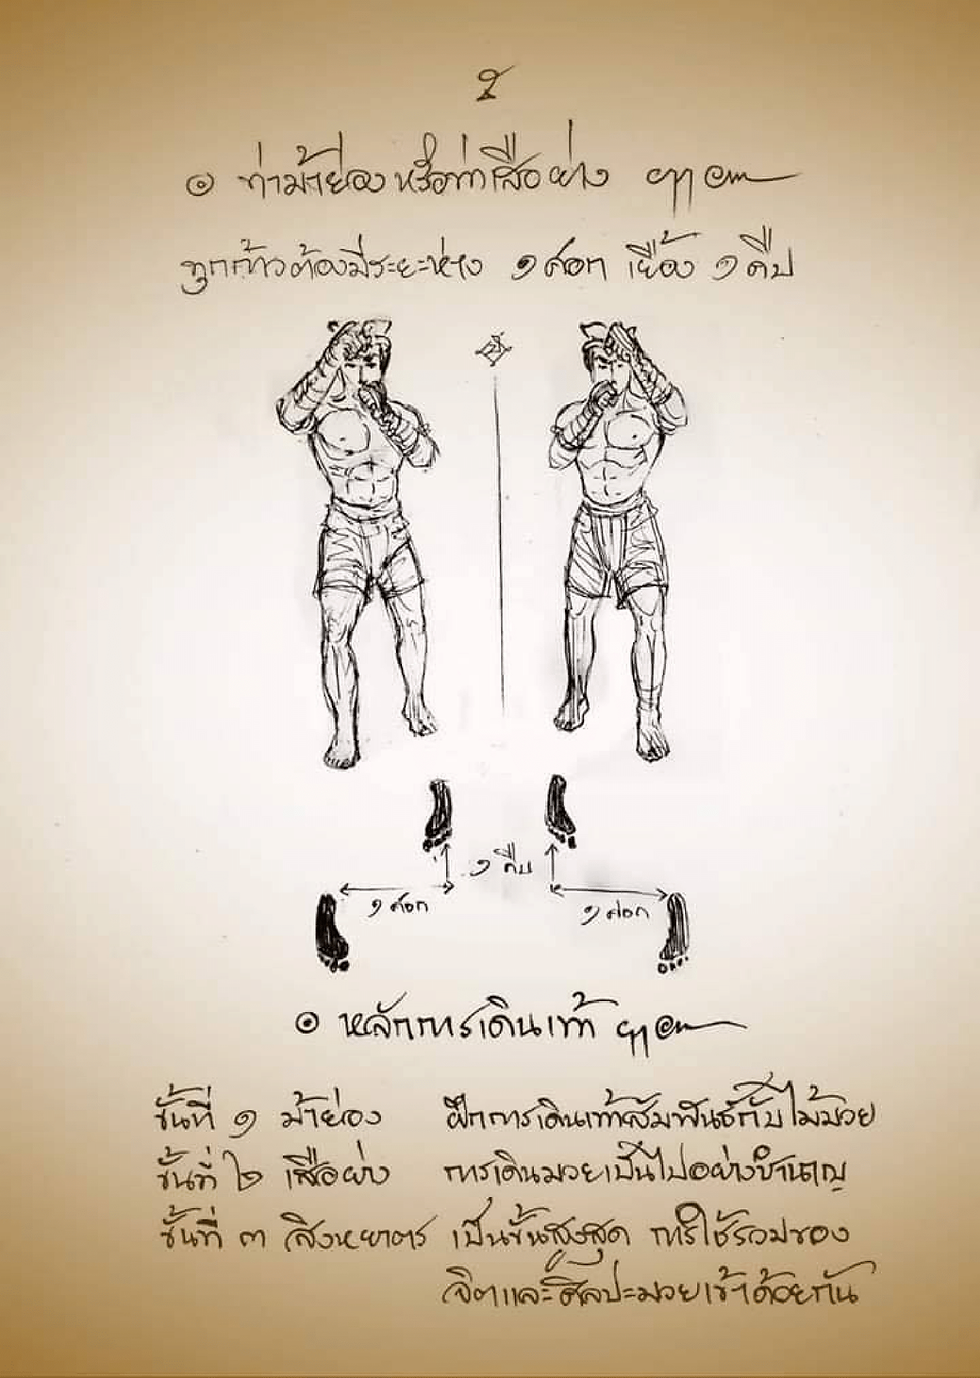 ๏ ท่าม้าย่องหรือท่าเสือย่าง ๚๛
ทุกก้าวต้องมีระยะห่าง ๑ ศอก เยื้อง ๑ คืบ
๑ คืบ
๑ ศอก ๑ ศอก
๏ หลักการเดินเท้า ๚๛
ขั้นที่ ๑ ม้าย่อง ฝึกการเดินเท้าสัมพันธ์กับไม้มวย
ขั้นที่ ๒ เสือย่าง การเดินมวยเป็นไปอย่างชำนาญ
ขั้นที่ ๓ สิงหยาตร เป็นขั้นสูงสุด การใช้รวมของ
จิตและศิลปะมวยเข้าด้วยกัน